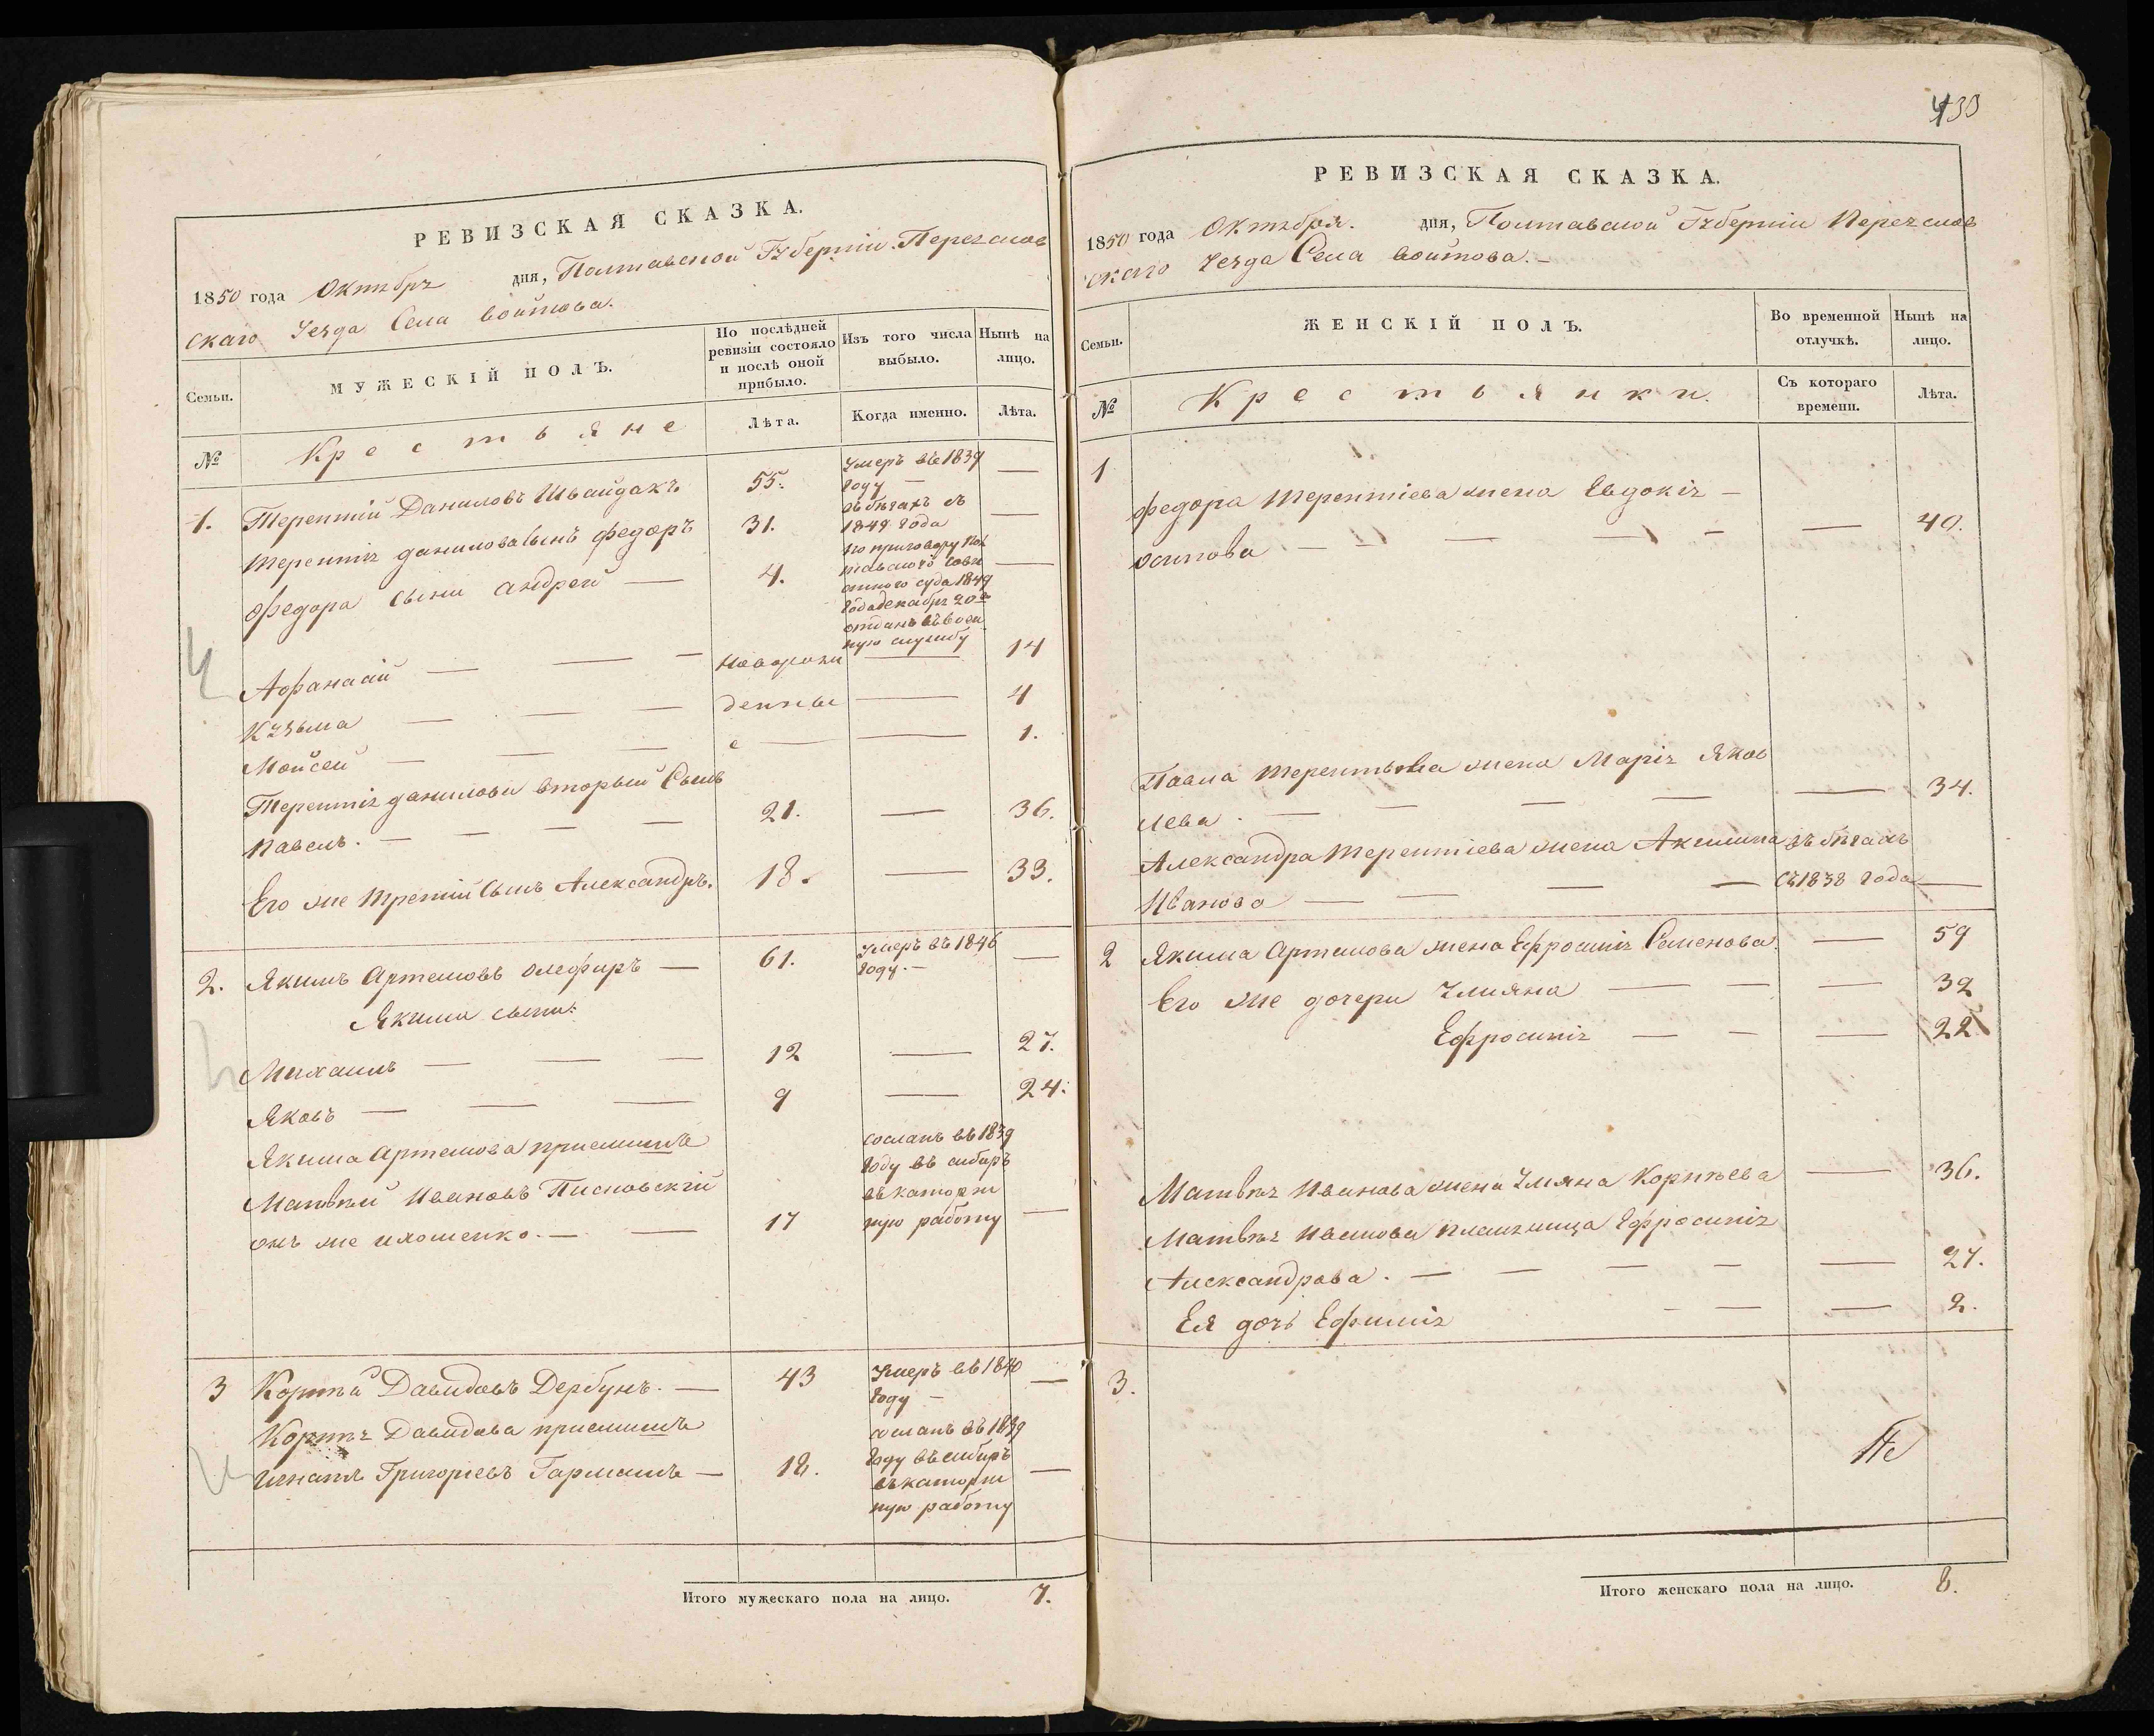 РЕВИЗСКАЯ СКАЗКА.
1850 года Октября дня, Полтавской Губернии Переяслав
скаго Уезда Села Войтова.
Семьи. МУЖЕСКІЙ ПОЛЪ. По послѣдней ревизіи состояло и послѣ оной прибыло. Изъ того числа выбыло. Нынѣ на лицо.
№ Крестьяне Лѣта. Когда именно. Лѣта.
1. Терентій Даниловъ Швайдакъ 55. Умеръ въ 1839 году —
Терентія данилова сынъ федоръ 31. въ бѣгахъ съ 1849 года —
федора сыни андрей — 4. по приговору Пол
тавского Совѣ
стного суда 1849
года декабря 20го
отданъ въ воен
ную службу —
Афанасій — — — новорож — 14
Кузьма — — — денны — 4
Мойсей — — — е — — 1.
Терентія данилова вторый Сынъ
Павелъ. — — — — 21. — 36.
Его же третій Сынъ Александръ. 18. — 33.
2. Якимъ Артемовъ Олефиръ — 61. Умеръ въ 1846 году. — —
Якима сыны:
Михаилъ — — — 12 — 27.
Яковъ — — — 9 — 24.
Якима Артемова приемышъ
Матвѣй Ивановъ Писковскій
онъ же Илошенко. — — 17 сосланъ въ 1839
году въ сибирь
въ каторж
ную работу —
3 Корнѣй Давидовъ Дербунъ. — 43 Умеръ въ 1840 году — —
Корнѣя Давидова приемышъ
Игнатъ Григорьевъ Гармашъ — 18. сосланъ въ 1839
году въ сибирь
въ каторж
ную работу —
Итого мужескаго пола на лицо. 7.
430
РЕВИЗСКАЯ СКАЗКА.
1850 года Октября. дня, Полтавской Губерніи Переяслав
скаго Уезда Села Войтова. —
Семьи. ЖЕНСКІЙ ПОЛЪ. Во временной отлучкѣ. Нынѣ на лицо.
№ Крестьянки. Съ котораго времени. Лѣта.
1 федора Терентіева жена Евдокія —
Осипова — — — — — — 40.
Павла Терентьева жена Марія Яков
лева. — — — — — 34.
Александра Терентіева жена Акилина въ бѣгахъ
Иванова — — — — съ 1838 года —
2 Якима Артемова жена Ефросинія Семенова. — 59
Его же дочери Улияна — — — 32
Ефросинія — — — 22
Матвѣя Иванова жена Улияна Корнѣева — 36.
Матвѣя Иванова племянница Ефросинія
Александрова. — — — — — 27.
Ея дочь Ефимія — — — 2.
3.
Итого женскаго пола на лицо. 8.